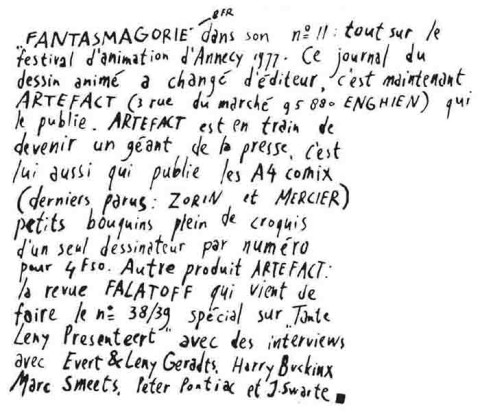 8FR
"FANTASMAGORIE" dans son nº 11: tout sur le
festival d'animation d'Annecy 1977. Ce journal du
dessin animé a changé d'éditeur, c'est maintenant
ARTEFACT (3 rue du marché 95880 ENGHIEN) qui
le publie. ARTEFACT est en train de
devenir un géant de la presse, c'est
lui aussi qui publie les A4 comix
(derniers parus: ZORIN et MERCIER)
petits bouquins plein de croquis
d'un seul dessinateur par numéro
pour 4F50. Autre produit ARTEFACT:
la revue FALATOFF qui vient de
faire le nº 38/39 spécial sur "Tante
Leny Presenteert" avec des interviews
avec Evert & Leny Geradts, Harry Buckinx
Marc Smeets, Peter Pontiac et J. Swarte ■